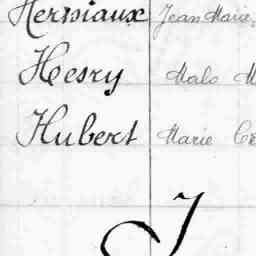 Hersiaux Jean Marie,
Hesry Malo M
Hubert Marie Cé
J